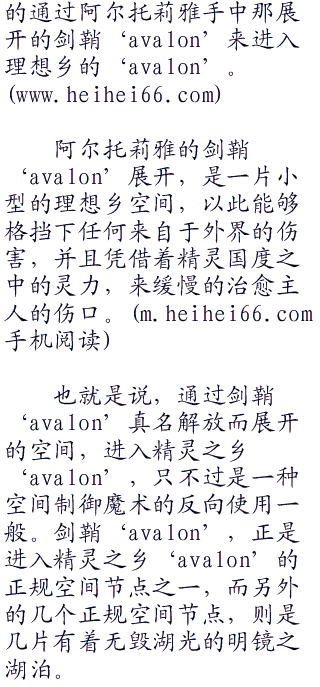 的通过阿尔托莉雅手中那展
开的剑鞘‘avalon’来进入
理想乡的‘avalon’。
(www.heihei66.com)
阿尔托莉雅的剑鞘
‘avalon’展开，是一片小
型的理想乡空间，以此能够
格挡下任何来自于外界的伤
害，并且凭借着精灵国度之
中的灵力，来缓慢的治愈主
人的伤口。(m.heihei66.com
手机阅读)
也就是说，通过剑鞘
‘avalon’真名解放而展开
的空间，进入精灵之乡
‘avalon’，只不过是一种
空间制御魔术的反向使用一
般。剑鞘‘avalon’，正是
进入精灵之乡‘avalon’的
正规空间节点之一，而另外
的几个正规空间节点，则是
几片有着无毁湖光的明镜之
湖泊。